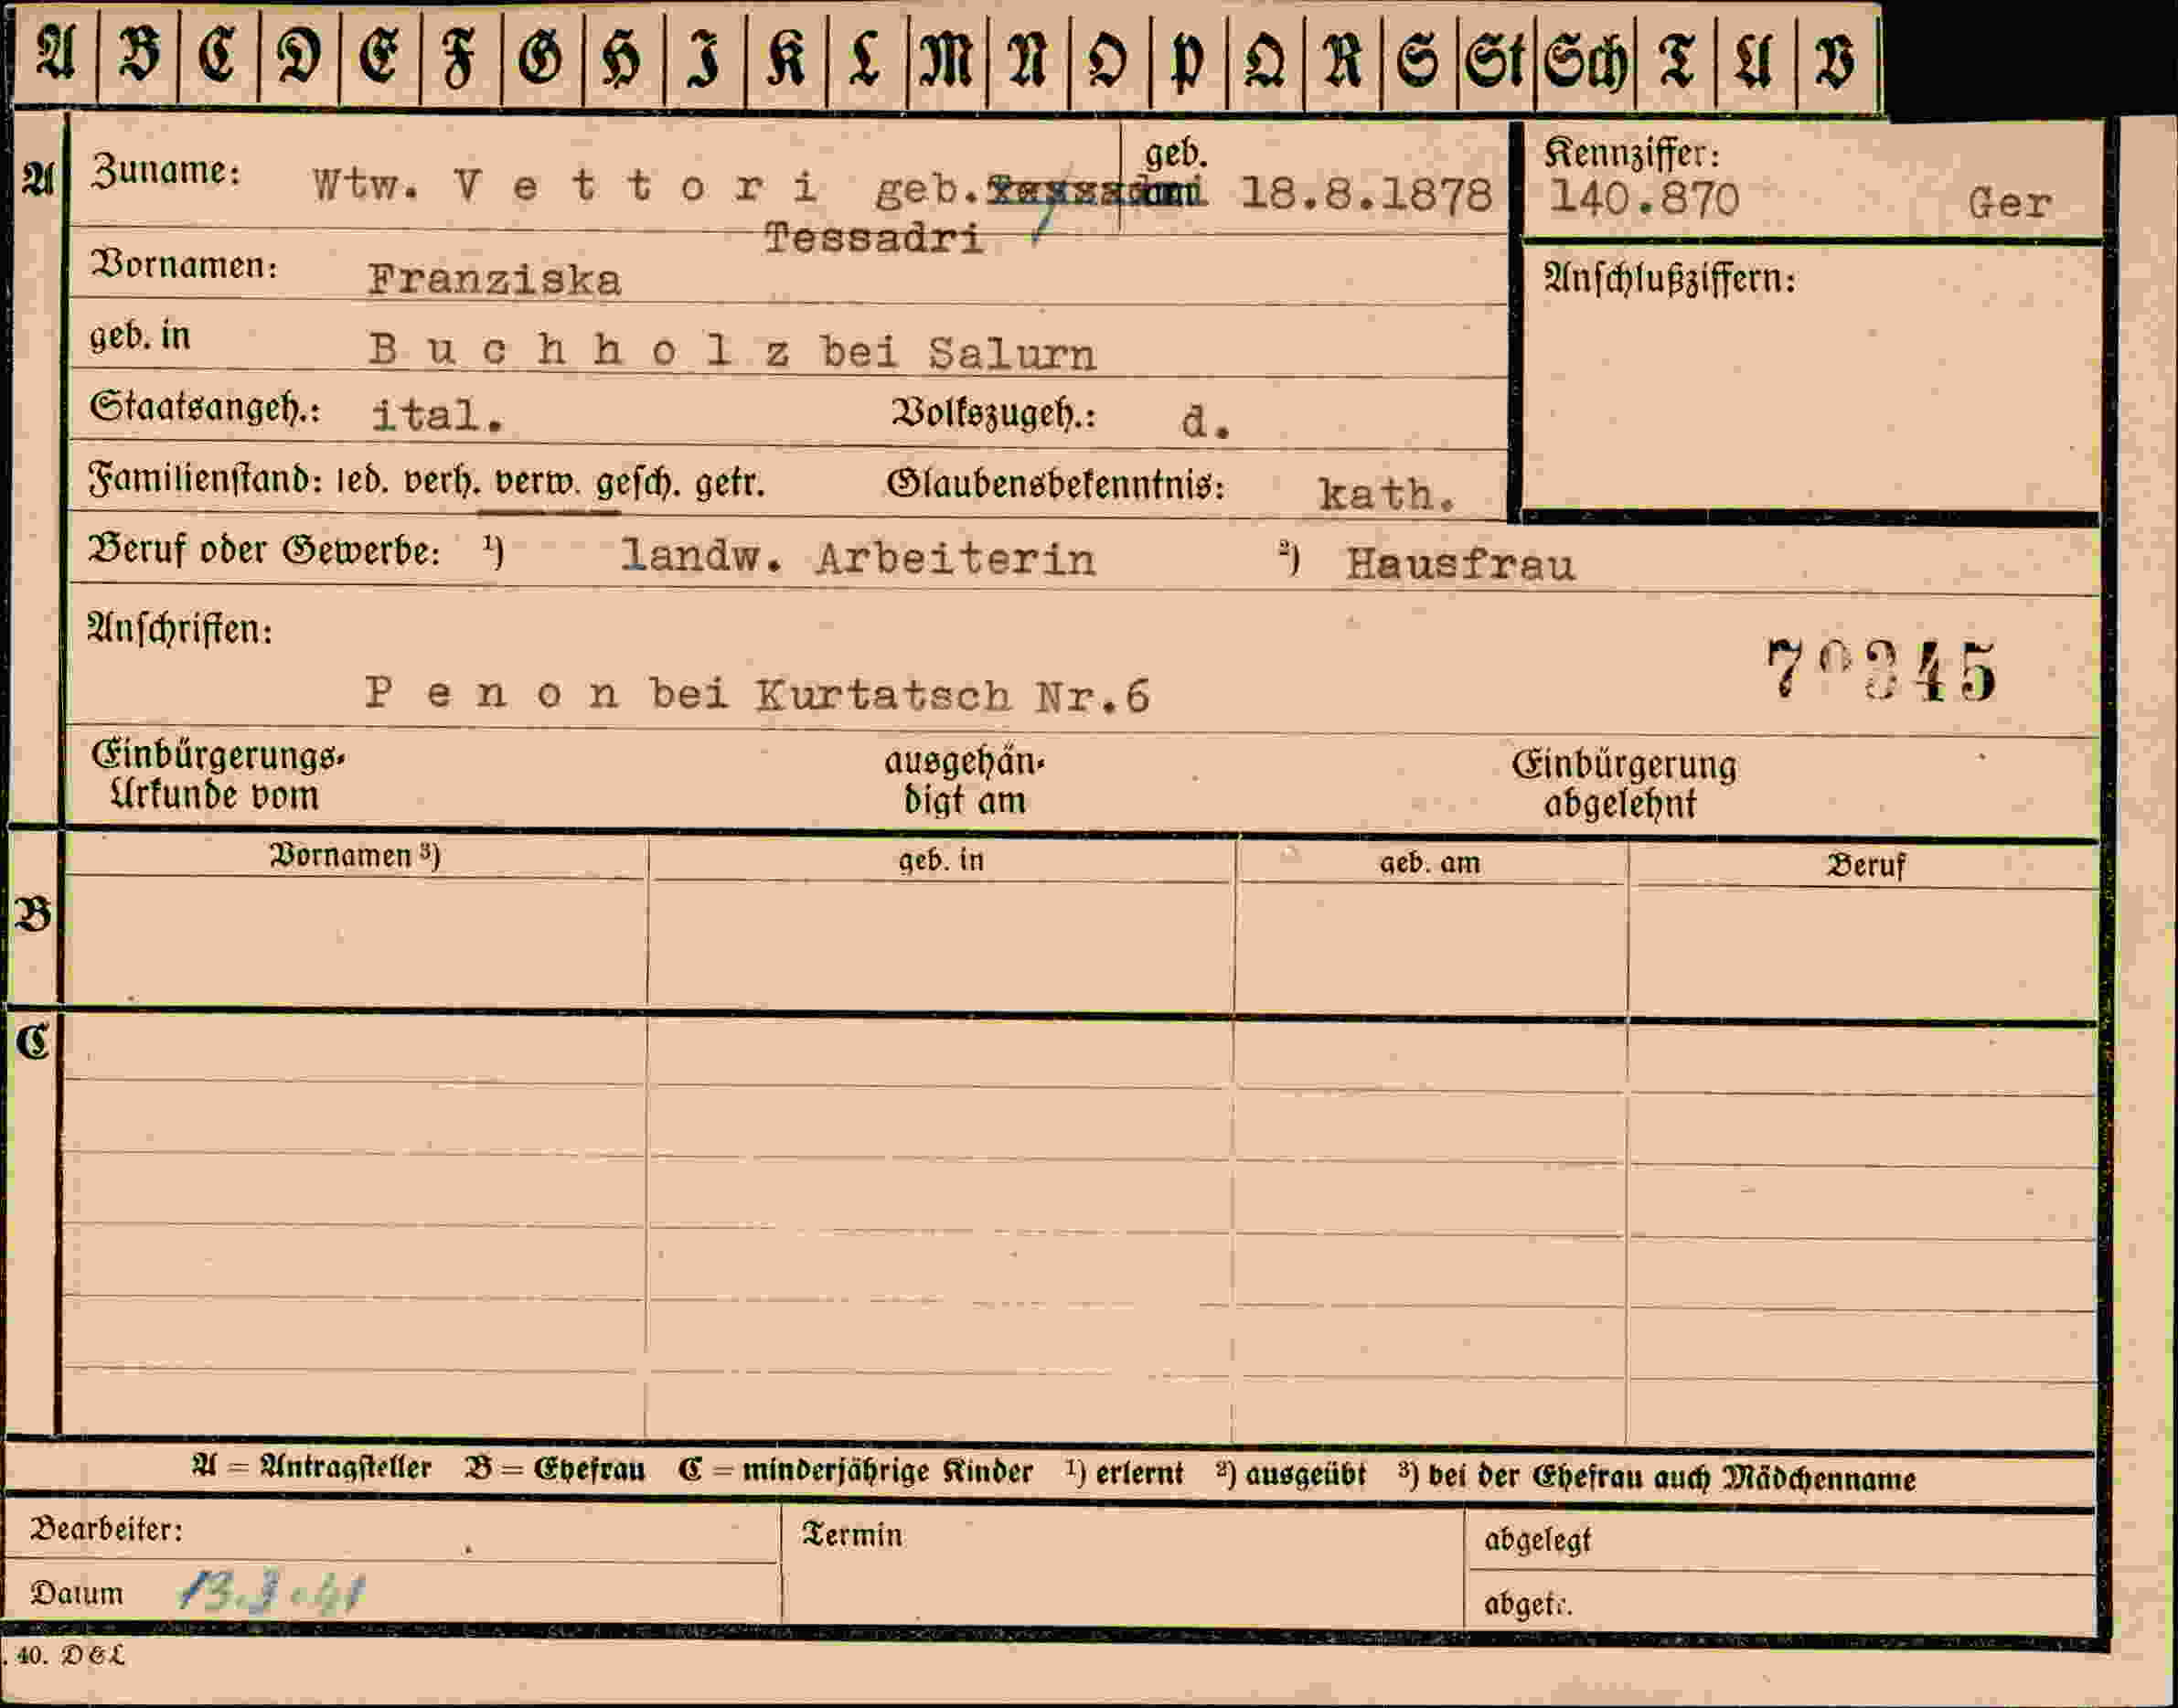 A B C D E F G H I K L M N O P Q R S St Sch T U V
A Zuname: Wtw. V e t t o r i geb. geb. 18.8.1878 Kennziffer: 140.870 Ger
Tessadri
Vornamen: Franziska Anschlußziffern:
geb. in B u c h h o l z bei Salurn
Staatsangeh.: ital. Volkszugeh.: d.
Familienstand: led. verh. verw. gesch. getr. Glaubensbekenntnis: kath.
Beruf oder Gewerbe: ¹) landw. Arbeiterin ²) Hausfrau
Anschriften:
P e n o n bei Kurtatsch Nr.6 70345
Einbürgerungs- ausgehän- Einbürgerung
Urkunde vom digt am abgelehnt
Vornamen ³) geb. in geb. am Beruf
B
C
A = Antragsteller B = Ehefrau C = minderjährige Kinder ¹) erlernt ²) ausgeübt ³) bei der Ehefrau auch Mädchenname
Bearbeiter: Termin abgelegt
Datum 13.3.41 abgetr.
. 40. D&L